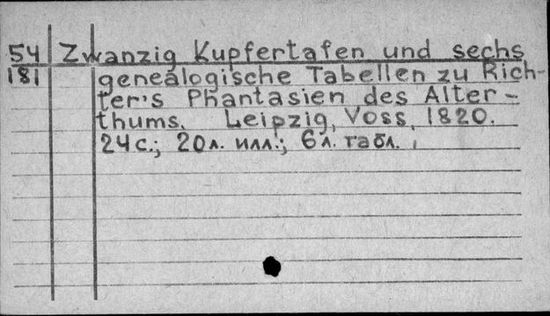 54 Zwanzig Kupfertafen und sechs
181 genealogische Tabellen zu Rich-
ter's Phantasien des Alter-
thums. Leipzig, Voss, 1820.
24с.; 20л. илл.; 6л. табл.